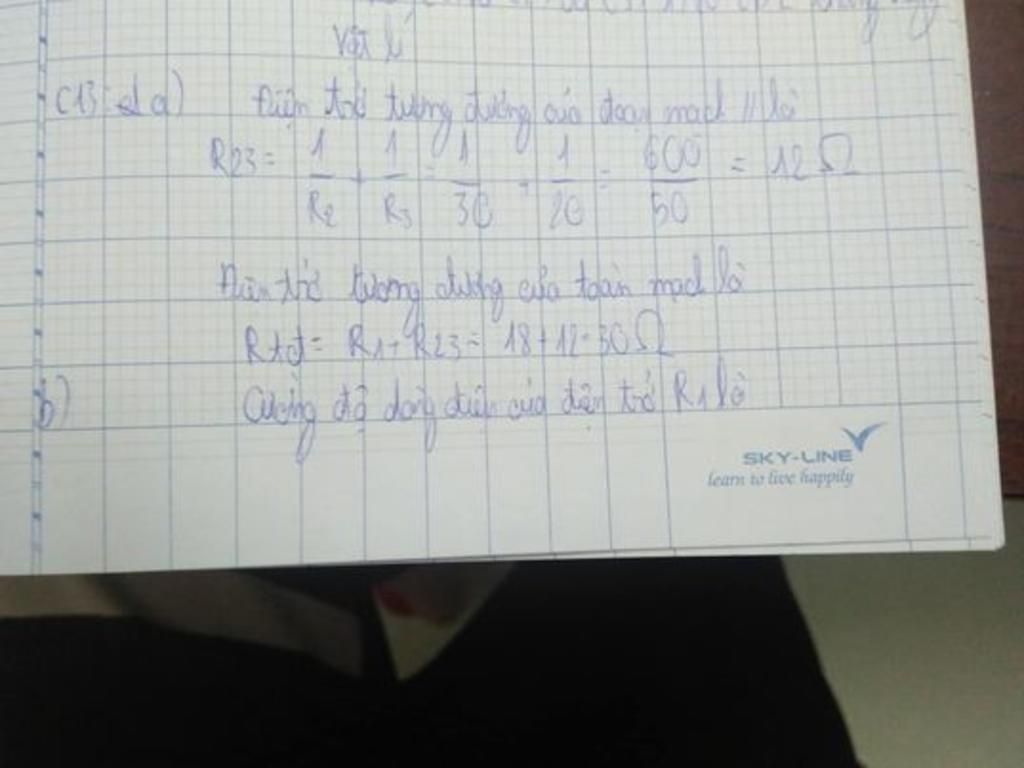 Vật lí
C13: a) Điện trở tương đương của đoạn mạch // là
R23 = 1/R2 + 1/R3 = 1/30 + 1/20 = 600/50 = 12 Ω
Điện trở tương đương của toàn mạch là
Rtđ = R1 + R23 = 18 + 12 = 30 Ω
b) Cường độ dòng điện của điện trở R1 là
SKY-LINE
learn to live happily